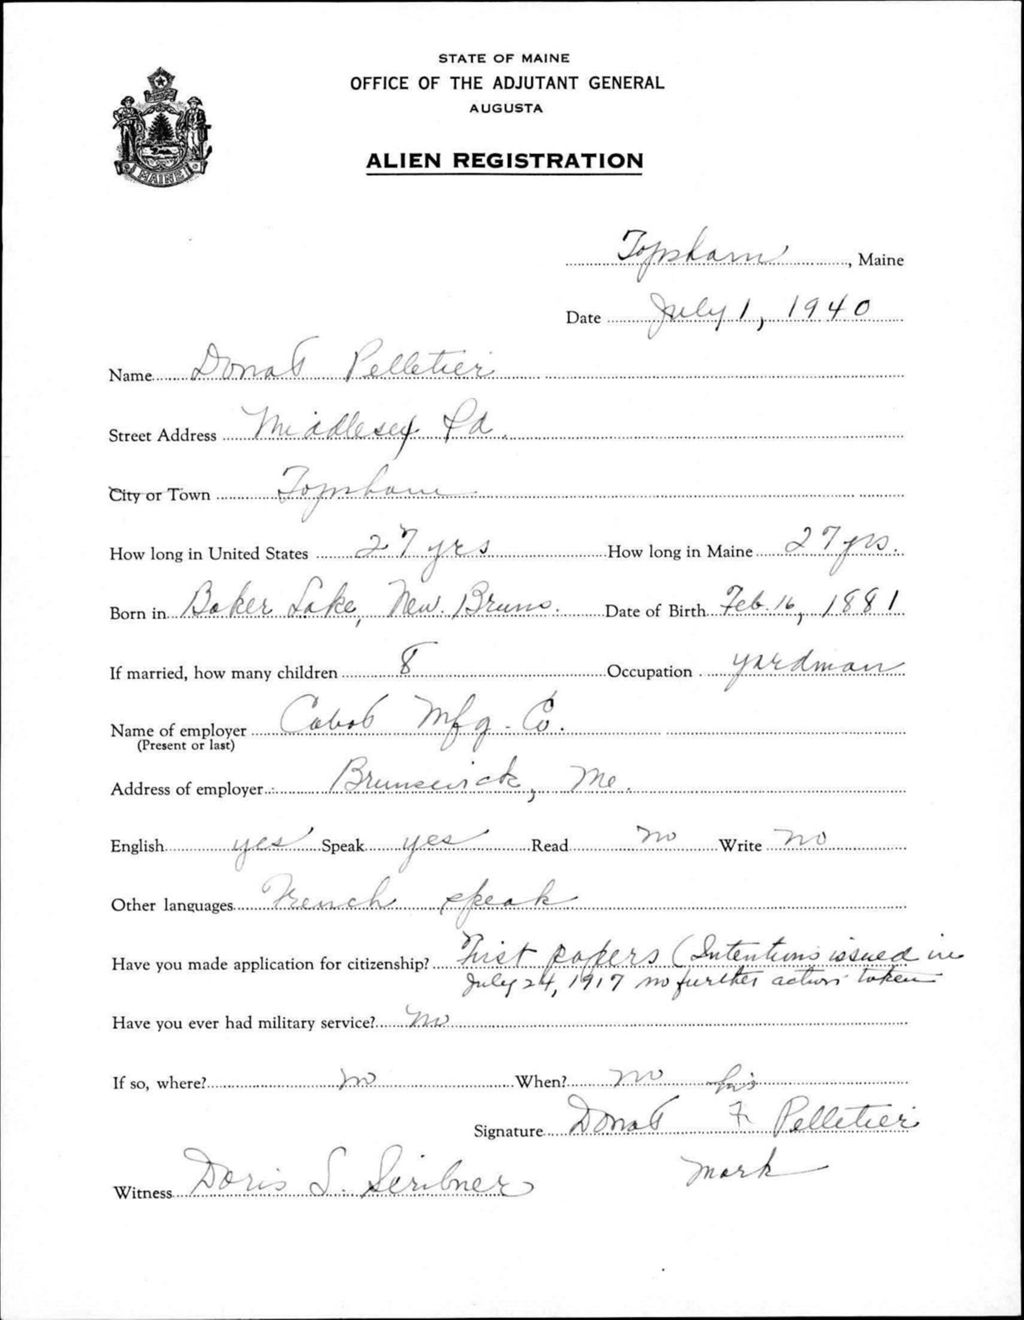 STATE OF MAINE
OFFICE OF THE ADJUTANT GENERAL
AUGUSTA
MAINE
ALIEN REGISTRATION
Topsham, Maine
Date July 1, 1940
Name Donat Pelletier
Street Address Middlesex Rd.
City or Town Topsham
How long in United States 27 yrs How long in Maine 27 yrs.
Born in Baker Lake, New Bruns. Date of Birth Feb. 16, 1881
If married, how many children 8 Occupation yardman
Name of employer Cabot Mfg. Co.
(Present or last)
Address of employer Brunswick, Me.
English yes Speak yes Read no Write no
Other languages French speak
Have you made application for citizenship? First papers (Intentions issued in
July 24, 1917 no further action taken
Have you ever had military service? no
If so, where? no When? no
his
Signature Donat Pelletier
mark
Witness Doris S. Scribner